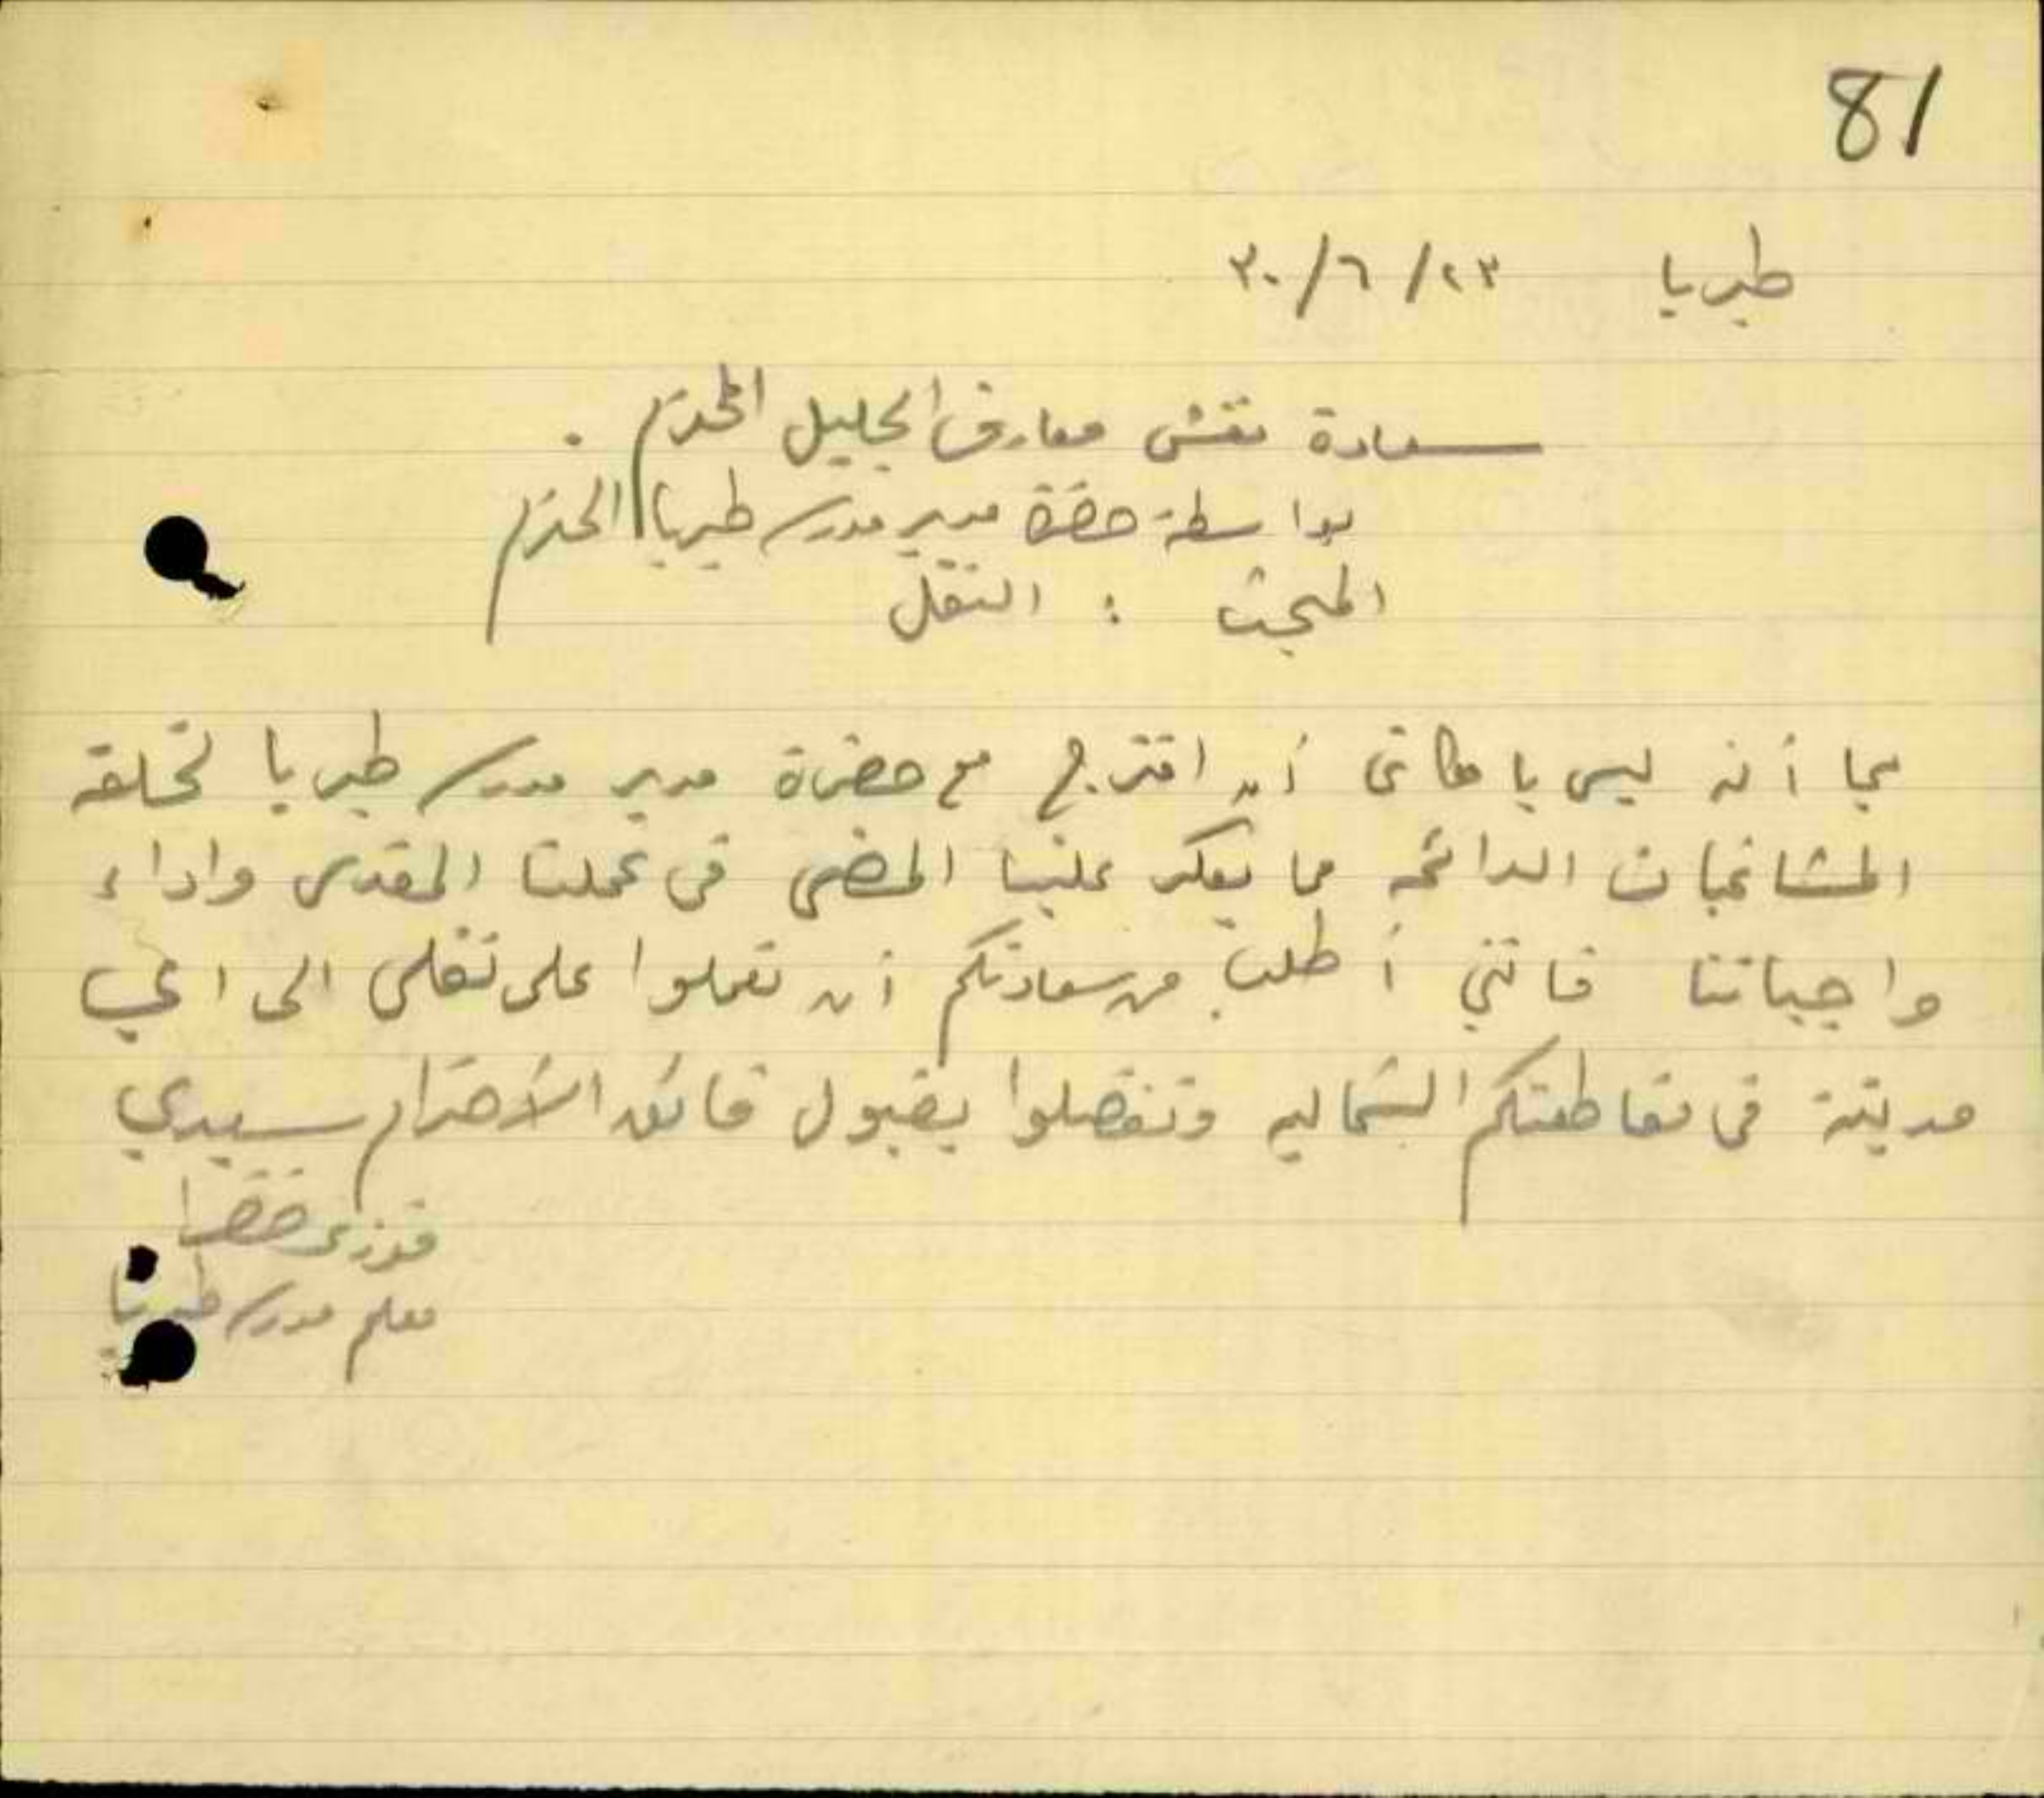 81
طبريا ٢٣/٦/٣٠
سعادة مفتش معارف الجليل المحترم .
بواسطة حضرة مدير مدرسة طبريا المحترم
المبحث : النقل
بما أنه ليس بامكاني أن امتزج مع حضرة مدير مدرسة طبريا
المشاغبات الدائمه مما يعكر علينا المضي في عملنا المقدس واداء
واجباتنا فانني أطلب من سعادتكم أن تعملوا على نقلي الى اي
مدينة في مقاطعتكم الشماليه وتفضلوا بقبول فائق الأحترام سيدي
فوزي
معلم مدرسة طبريا